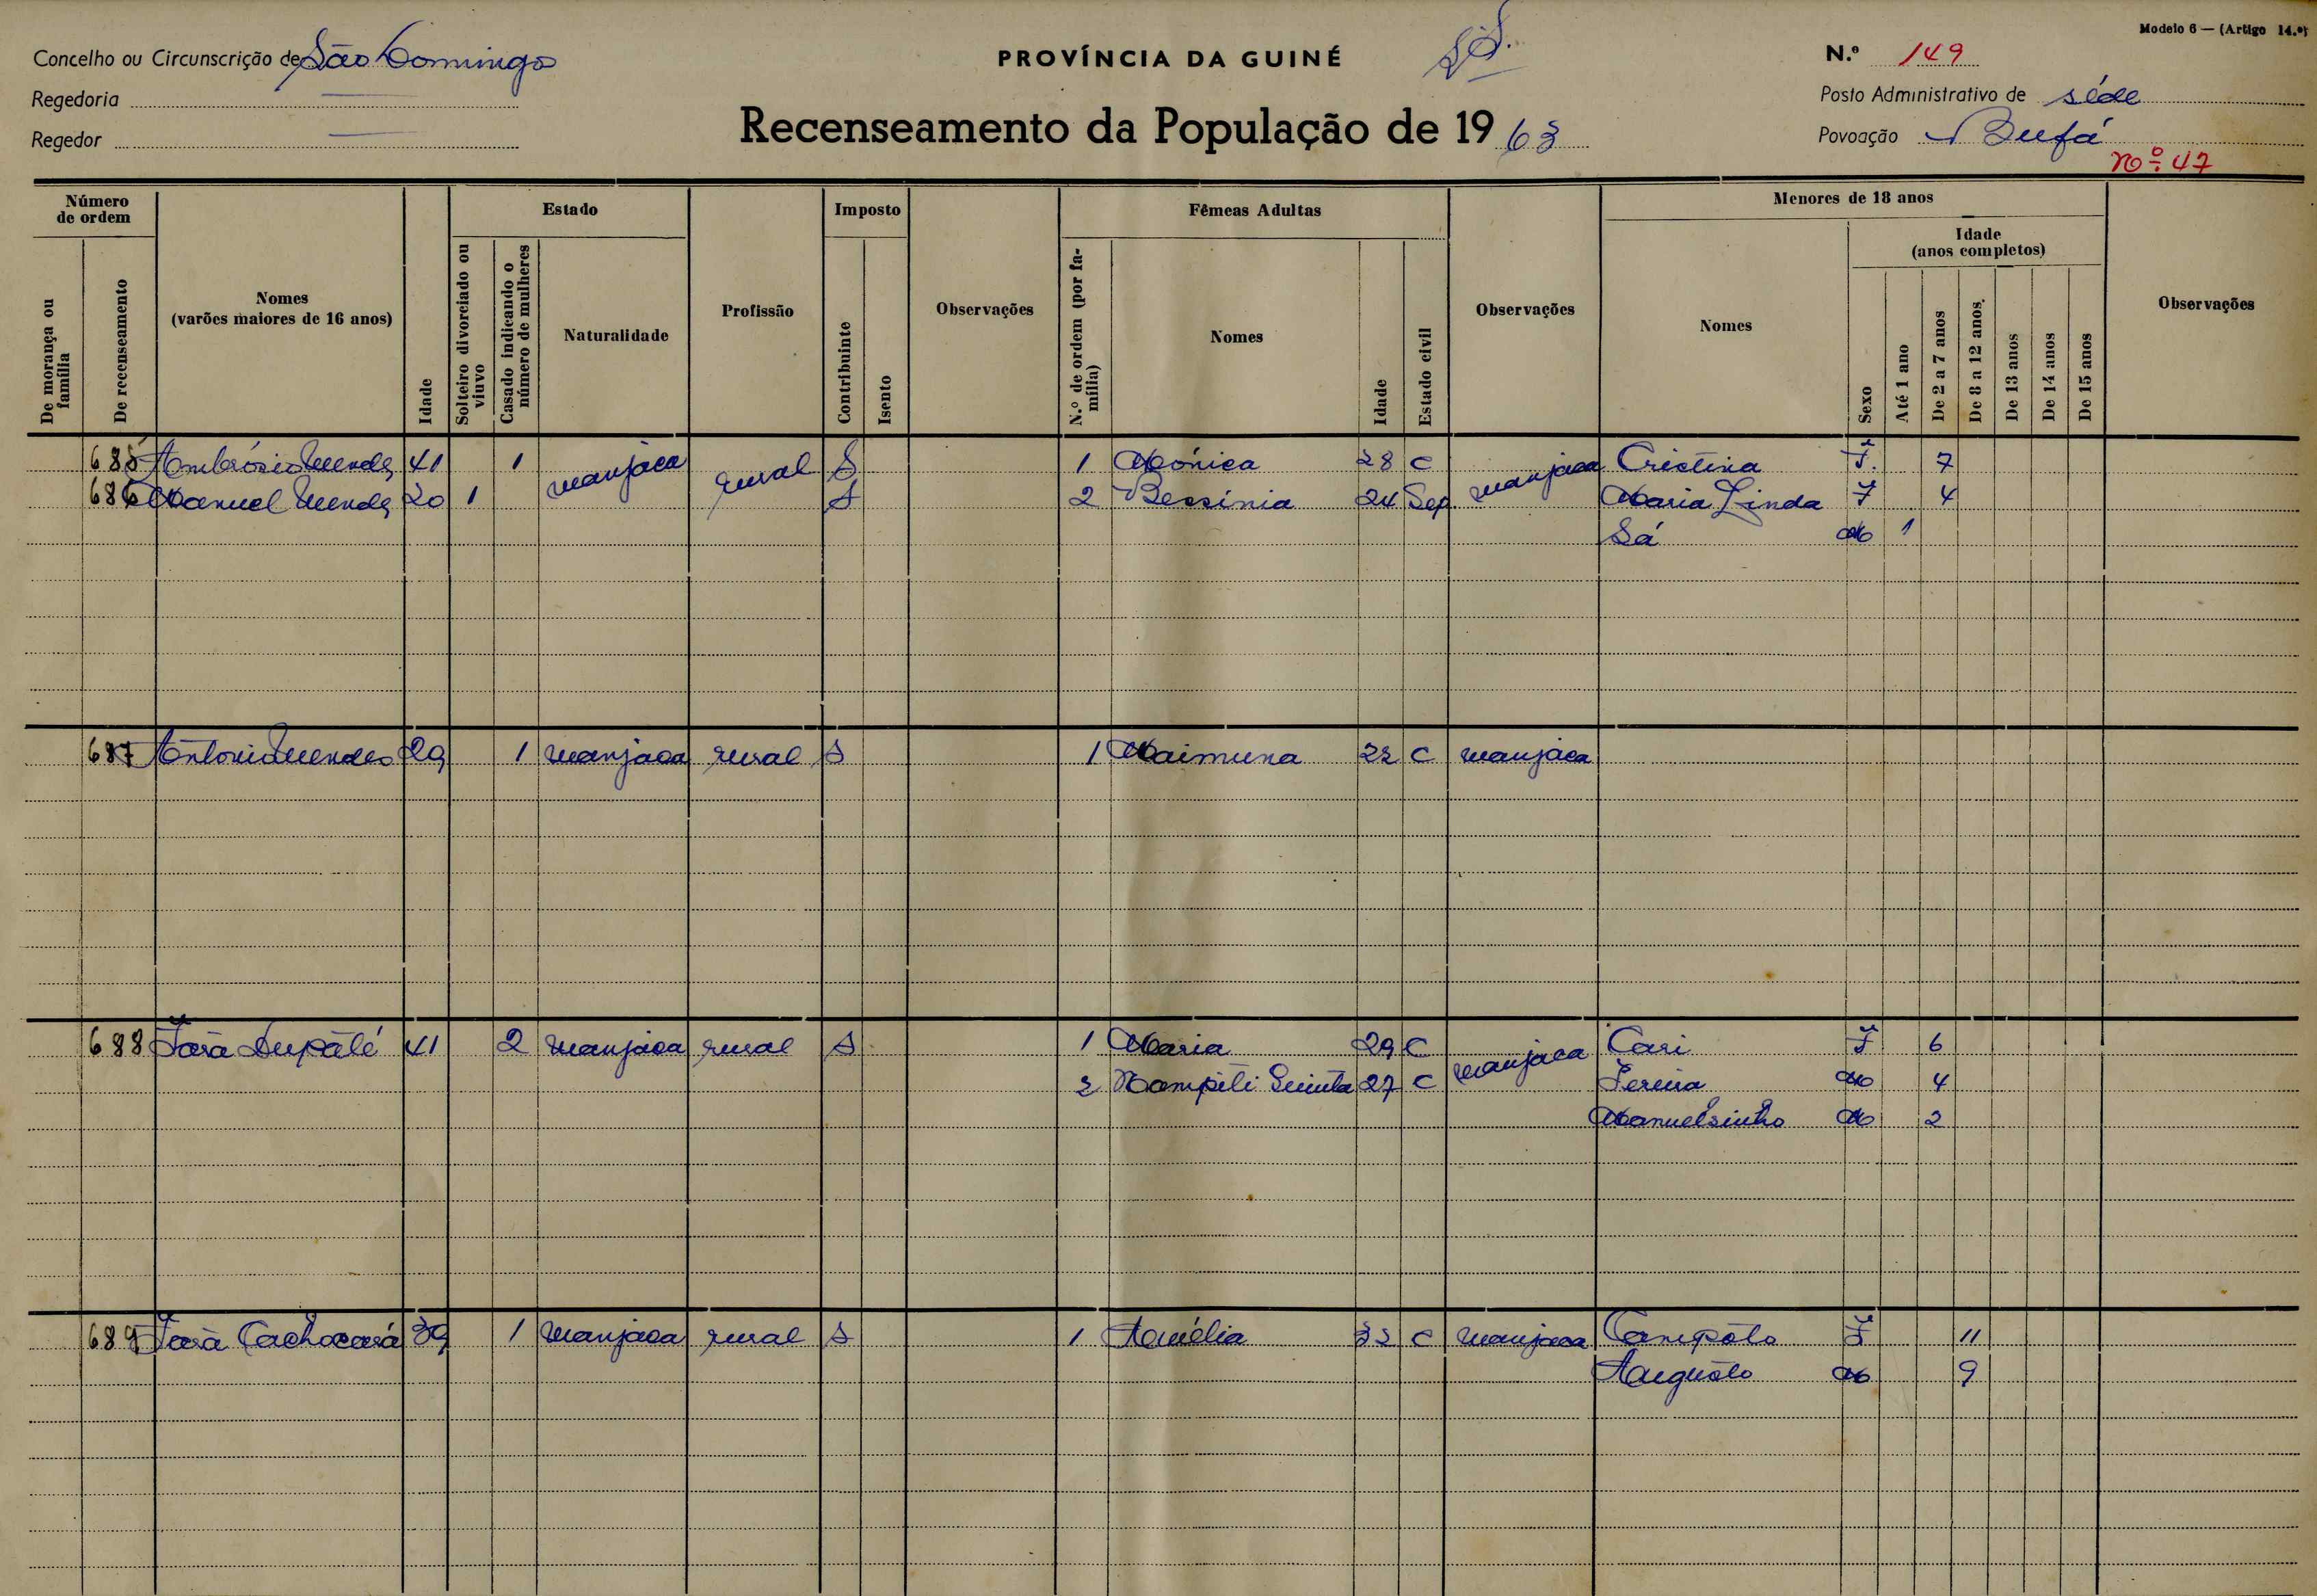 Modelo 6 — (Artigo 14.º)
Concelho ou Circunscrição de São Domingo
PROVÍNCIA DA GUINÉ
N.º 149
Regedoria
Posto Administrativo de séde
Recenseamento da População de 1963
Regedor
Povoação Bufá
nº: 47
Número de ordem
De morança ou família
De recenseamento
Nomes (varões maiores de 16 anos)
Idade
Estado
Solteiro divorciado ou viuvo
Casado indicando o número de mulheres
Naturalidade
Profissão
Imposto
Contribuinte
Isento
Observações
Fêmeas Adultas
N.º de ordem (por família)
Nomes
Idade
Estado civil
Observações
Menores de 18 anos
Nomes
Sexo
Idade (anos completos)
Até 1 ano
De 2 a 7 anos
De 8 a 12 anos
De 13 anos
De 14 anos
De 15 anos
Observações
685 Ambrósio Mendes 41 1 manjaca rural S 1 Mónica 28 C manjaca Cristina F. 7
686 Manuel Mendes 20 1 S 2 Bessinia 24 Sep Maria Linda F 4
Sá M 1
687 António Mendes 29 1 manjaca rural S 1 Maimuna 22 C manjaca
688 Jará Dupálé 41 2 manjaca rural S 1 Maria 29 C manjaca Cari F 6
2 Nampili Quinta 27 C M 4
Manuelsinho M 2
689 Jará 39 1 manjaca rural S 1 Amélia 32 C manjaca Campólo F 11
Augusto M 9